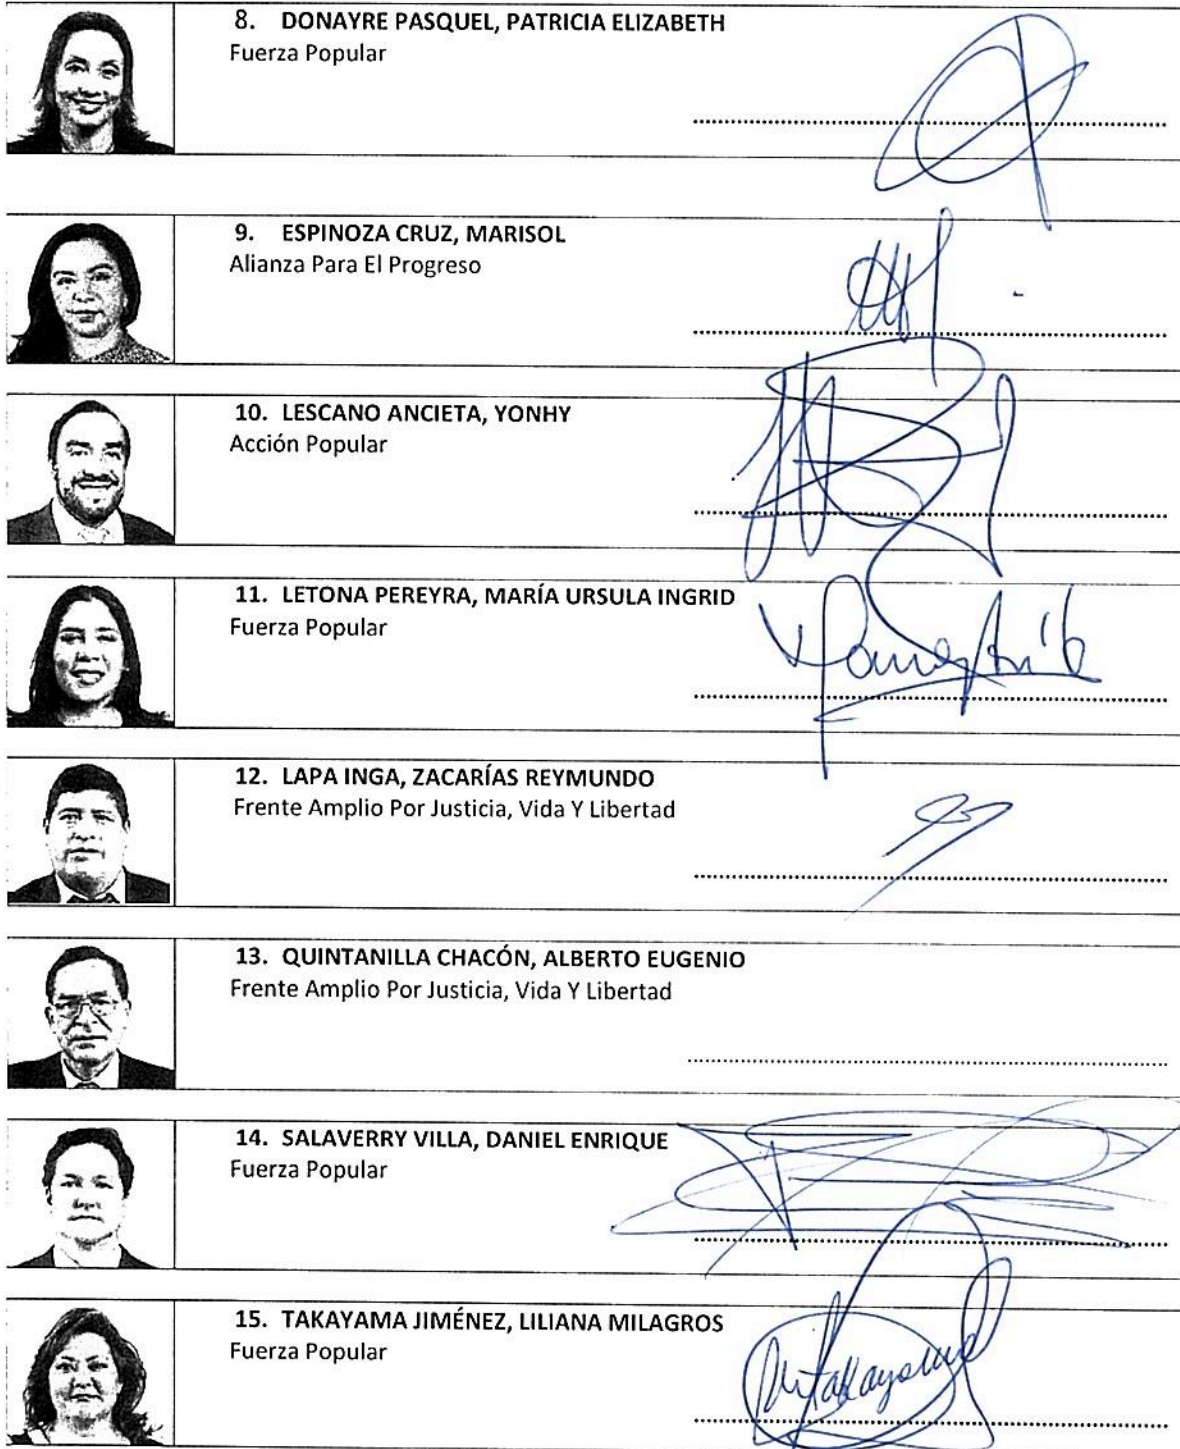 8. DONAYRE PASQUEL, PATRICIA ELIZABETH
Fuerza Popular
9. ESPINOZA CRUZ, MARISOL
Alianza Para El Progreso
10. LESCANO ANCIETA, YONHY
Acción Popular
11. LETONA PEREYRA, MARÍA URSULA INGRID
Fuerza Popular
12. LAPA INGA, ZACARÍAS REYMUNDO
Frente Amplio Por Justicia, Vida Y Libertad
13. QUINTANILLA CHACÓN, ALBERTO EUGENIO
Frente Amplio Por Justicia, Vida Y Libertad
14. SALAVERRY VILLA, DANIEL ENRIQUE
Fuerza Popular
15. TAKAYAMA JIMÉNEZ, LILIANA MILAGROS
Fuerza Popular